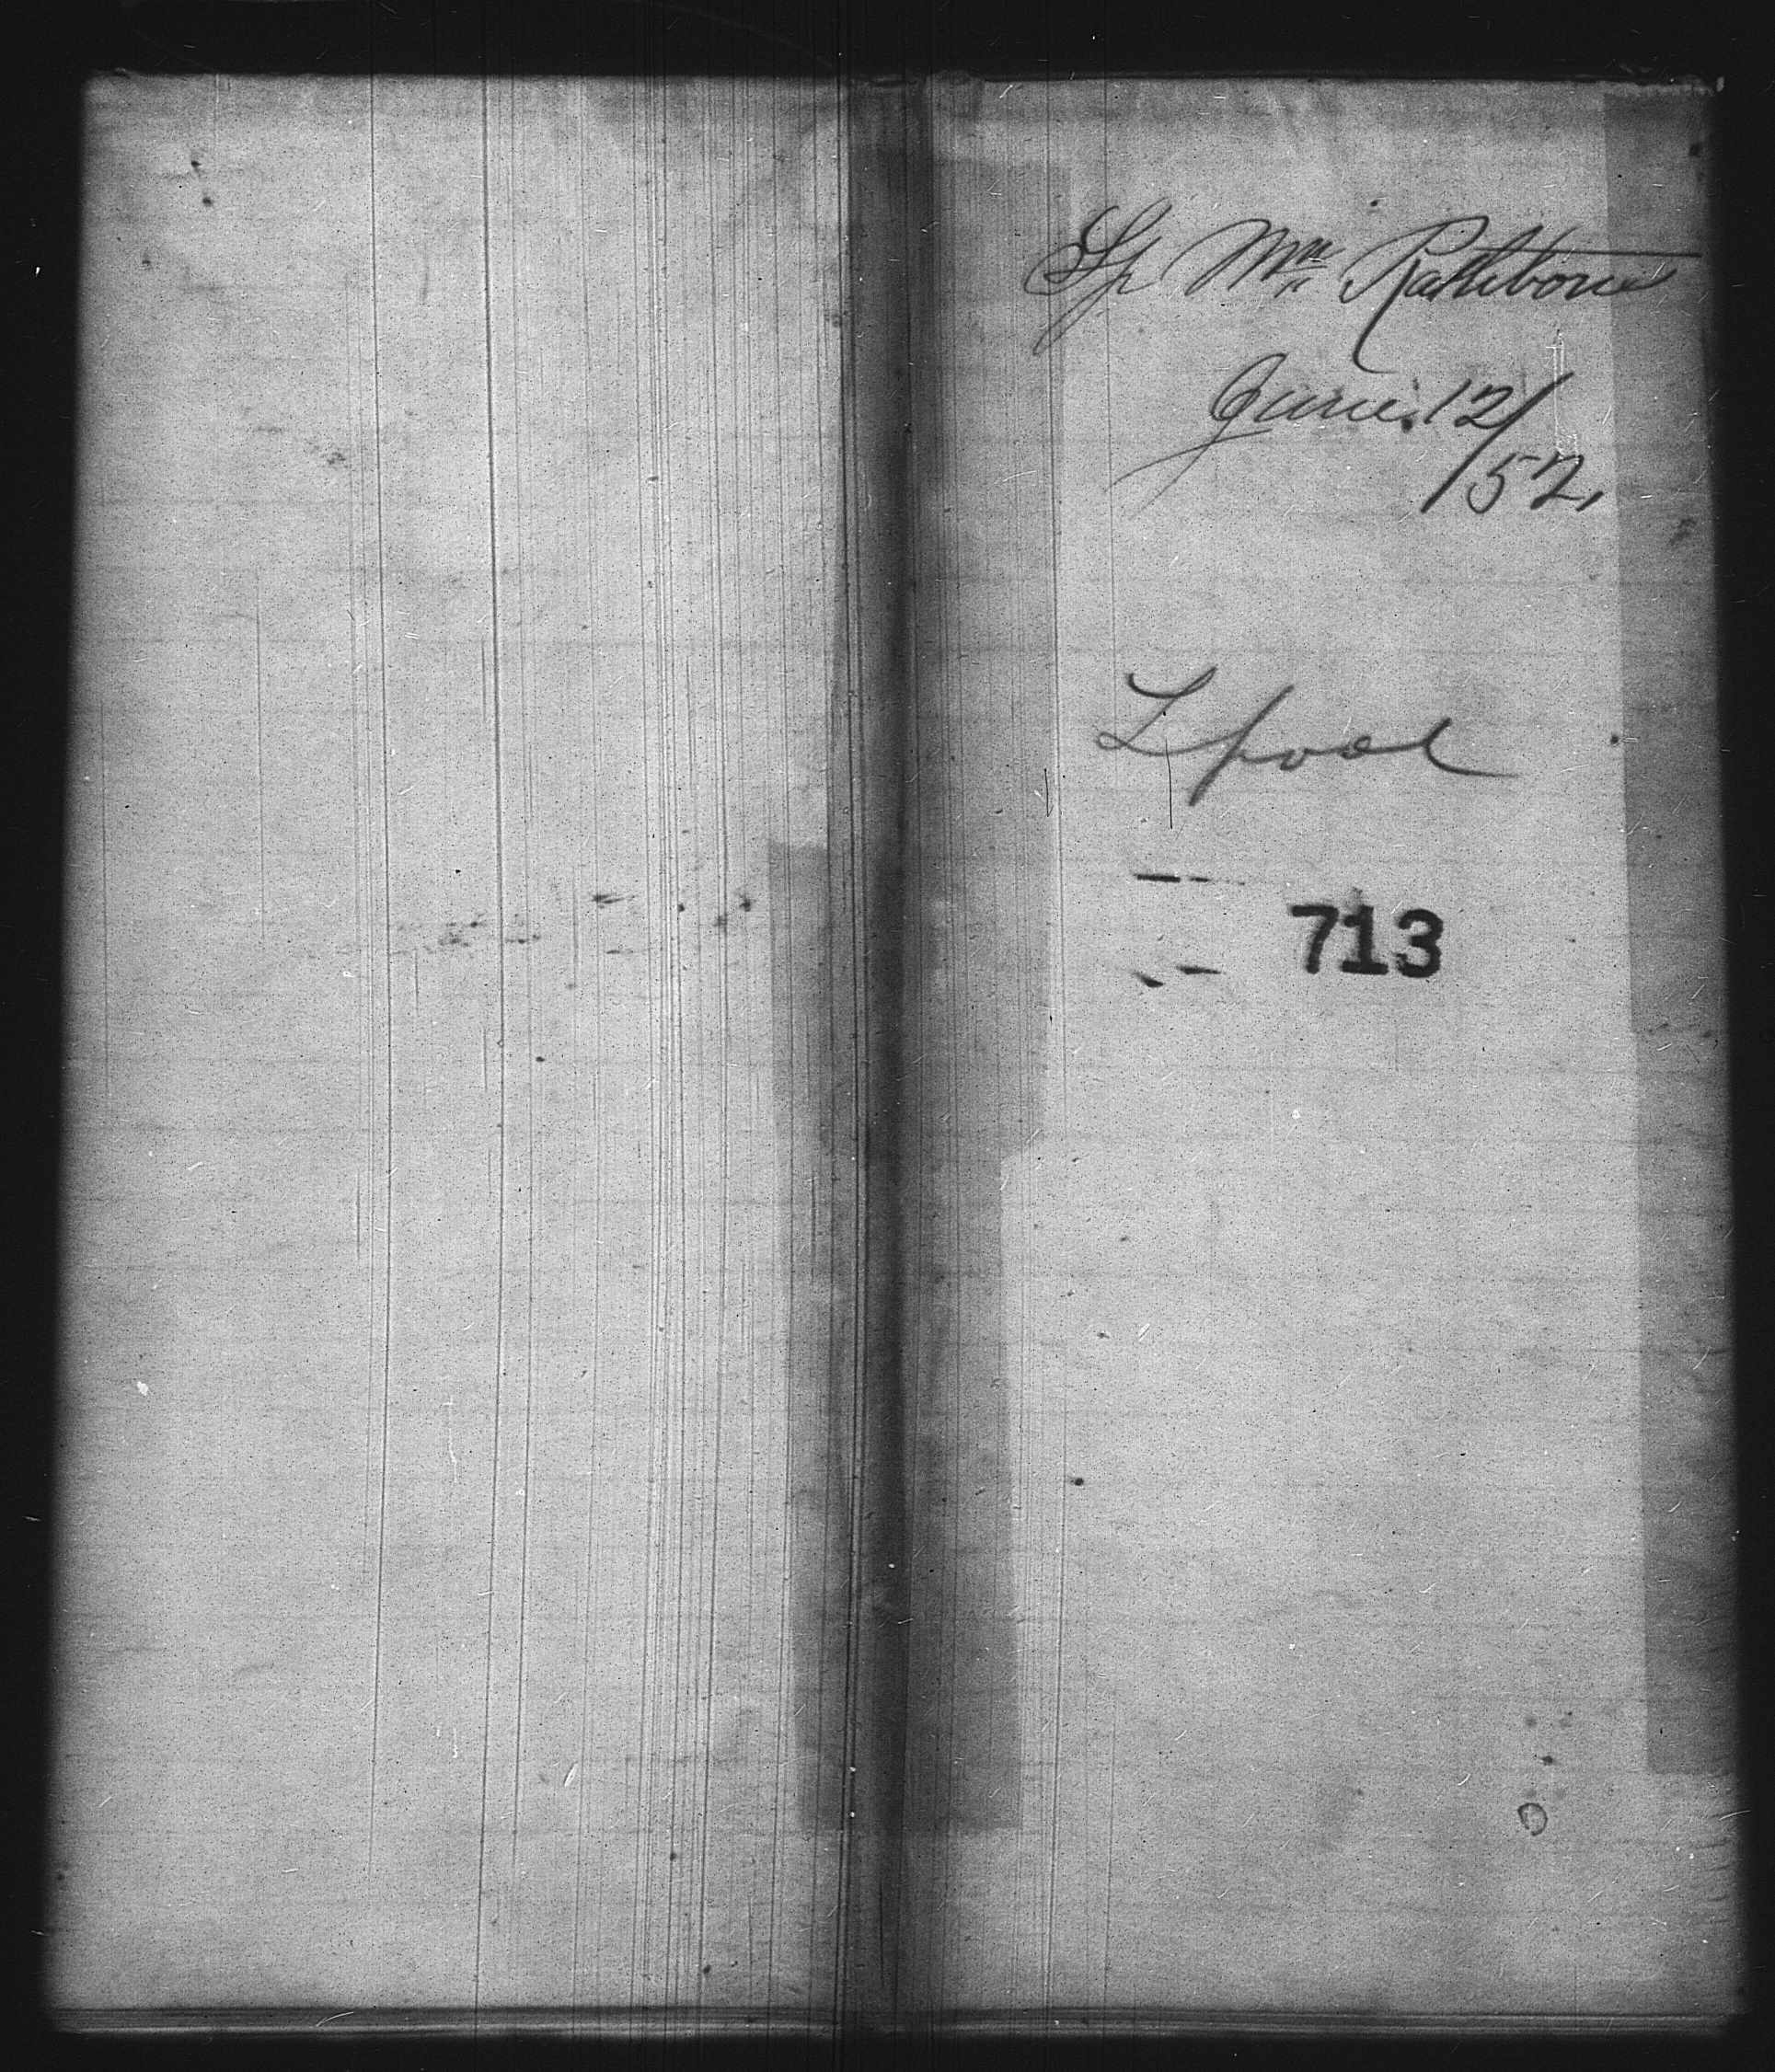 Sp Wm Rathbone
June 12/
/52,
Lpool
713